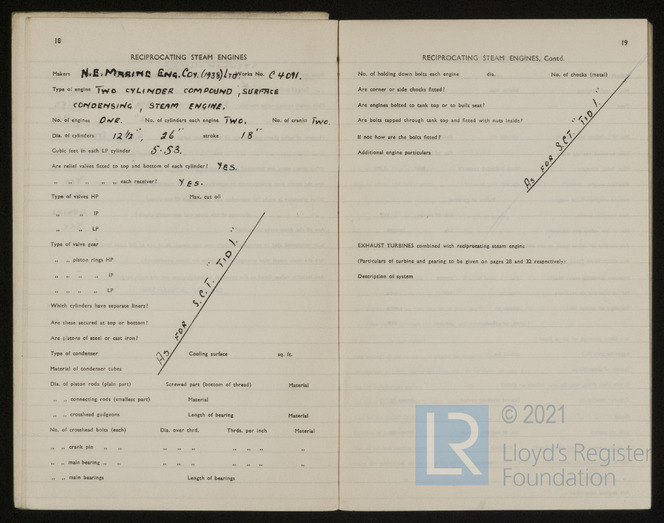 18
RECIPROCATING STEAM ENGINES
Makers N.E. MARINE ENG. COY. (1938) LTD Works No. C 4091.
Type of engine TWO CYLINDER COMPOUND, SURFACE
CONDENSING, STEAM ENGINE.
No. of engines ONE. No. of cylinders each engine TWO. No. of cranks TWO.
Dia. of cylinders 12½", 26" stroke 18"
Cubic feet in each LP cylinder 5.53.
Are relief valves fitted to top and bottom of each cylinder? YES.
„ „ „ „ „ each receiver? YES.
Type of valves HP Max. cut off
„ „ IP
„ „ LP
Type of valve gear
„ „ piston rings HP
„ „ „ „ IP
„ „ „ „ LP
Which cylinders have separate liners?
Are these secured at top or bottom?
Are pistons of steel or cast iron?
AS FOR S.C.T. "TID 1."
Type of condenser Cooling surface sq. ft.
Material of condenser tubes
Dia. of piston rods (plain part) Screwed part (bottom of thread) Material
„ „ connecting rods (smallest part) Material
„ „ crosshead gudgeons Length of bearing Material
No. of crosshead bolts (each) Dia. over thrd. Thrds. per inch Material
„ „ crank pin „ „ „ „ „ „ „ „ „ „ „
„ „ main bearing „ „ „ „ „ „ „ „ „ „ „
„ „ main bearings Length of bearings
19
RECIPROCATING STEAM ENGINES, Contd.
No. of holding down bolts each engine dia. No. of chocks (metal)
Are corner or side chocks fitted?
Are engines bolted to tank top or to built seat?
Are bolts tapped through tank top and fitted with nuts inside?
If not how are the bolts fitted?
Additional engine particulars
AS FOR S.C.T. "TID 1."
EXHAUST TURBINES combined with reciprocating steam engine
(Particulars of turbine and gearing to be given on pages 28 and 32 respectively)
Description of system
LR
© 2021
Lloyd's Register
Foundation